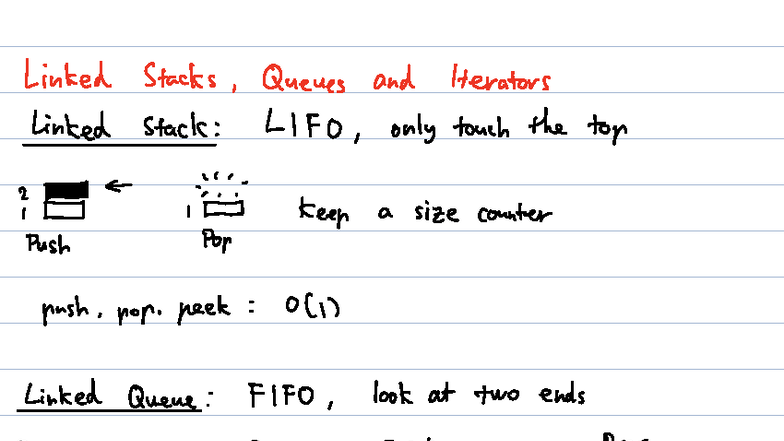 Linked Stacks, Queues and Iterators
Linked Stack: LIFO, only touch the top
2
1
1
keep a size counter
Push
Pop
push, pop, peek : O(1)
Linked Queue: FIFO, look at two ends